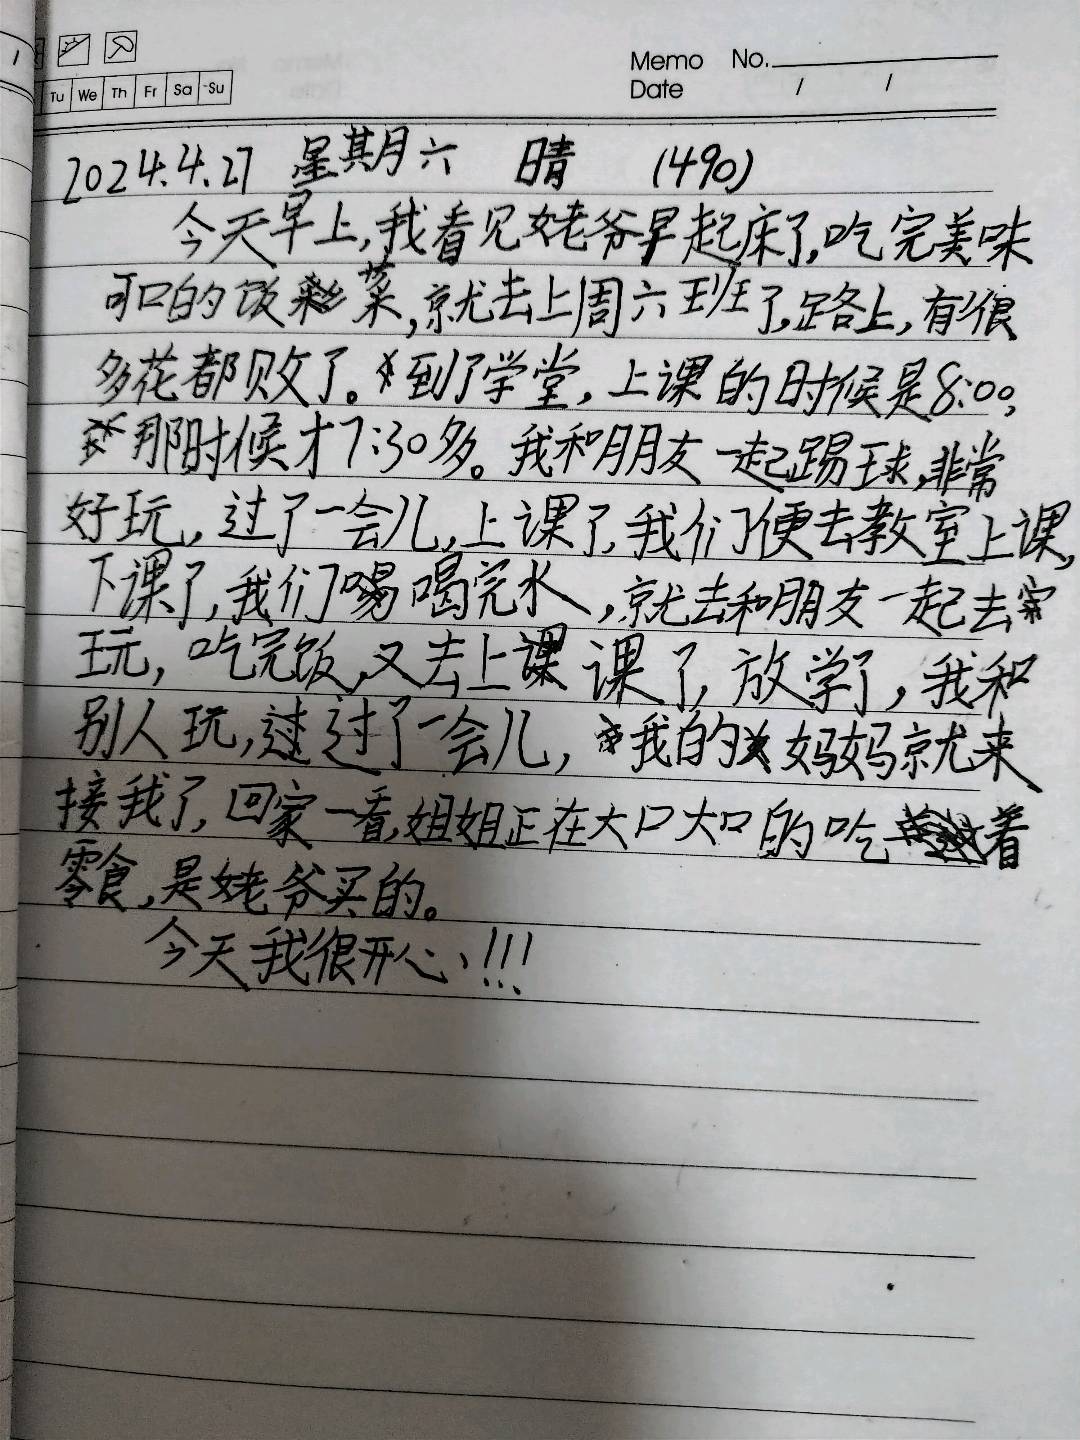 Memo No.
Tu We Th Fr Sa Su
Date / /
2024.4.27 星期月六 晴 (490)
今天早上,我看见姥爷早起床了,吃完美味
可口的饭菜,就去上周六班了,路上,有很
多花都败了。到了学堂,上课的时候是8:00,
那时候才7:30多。我和朋友一起踢球,非常
好玩,过了一会儿,上课了,我们便去教室上课,
下课了,我们喝喝完水,就去和朋友一起去
玩,吃完饭,又去上课课了,放学了,我和
别人玩,过过了一会儿,我的妈妈就来
接我了,回家一看,姐姐正在大口大口的吃着
零食,是姥爷买的。
今天我很开心!!!